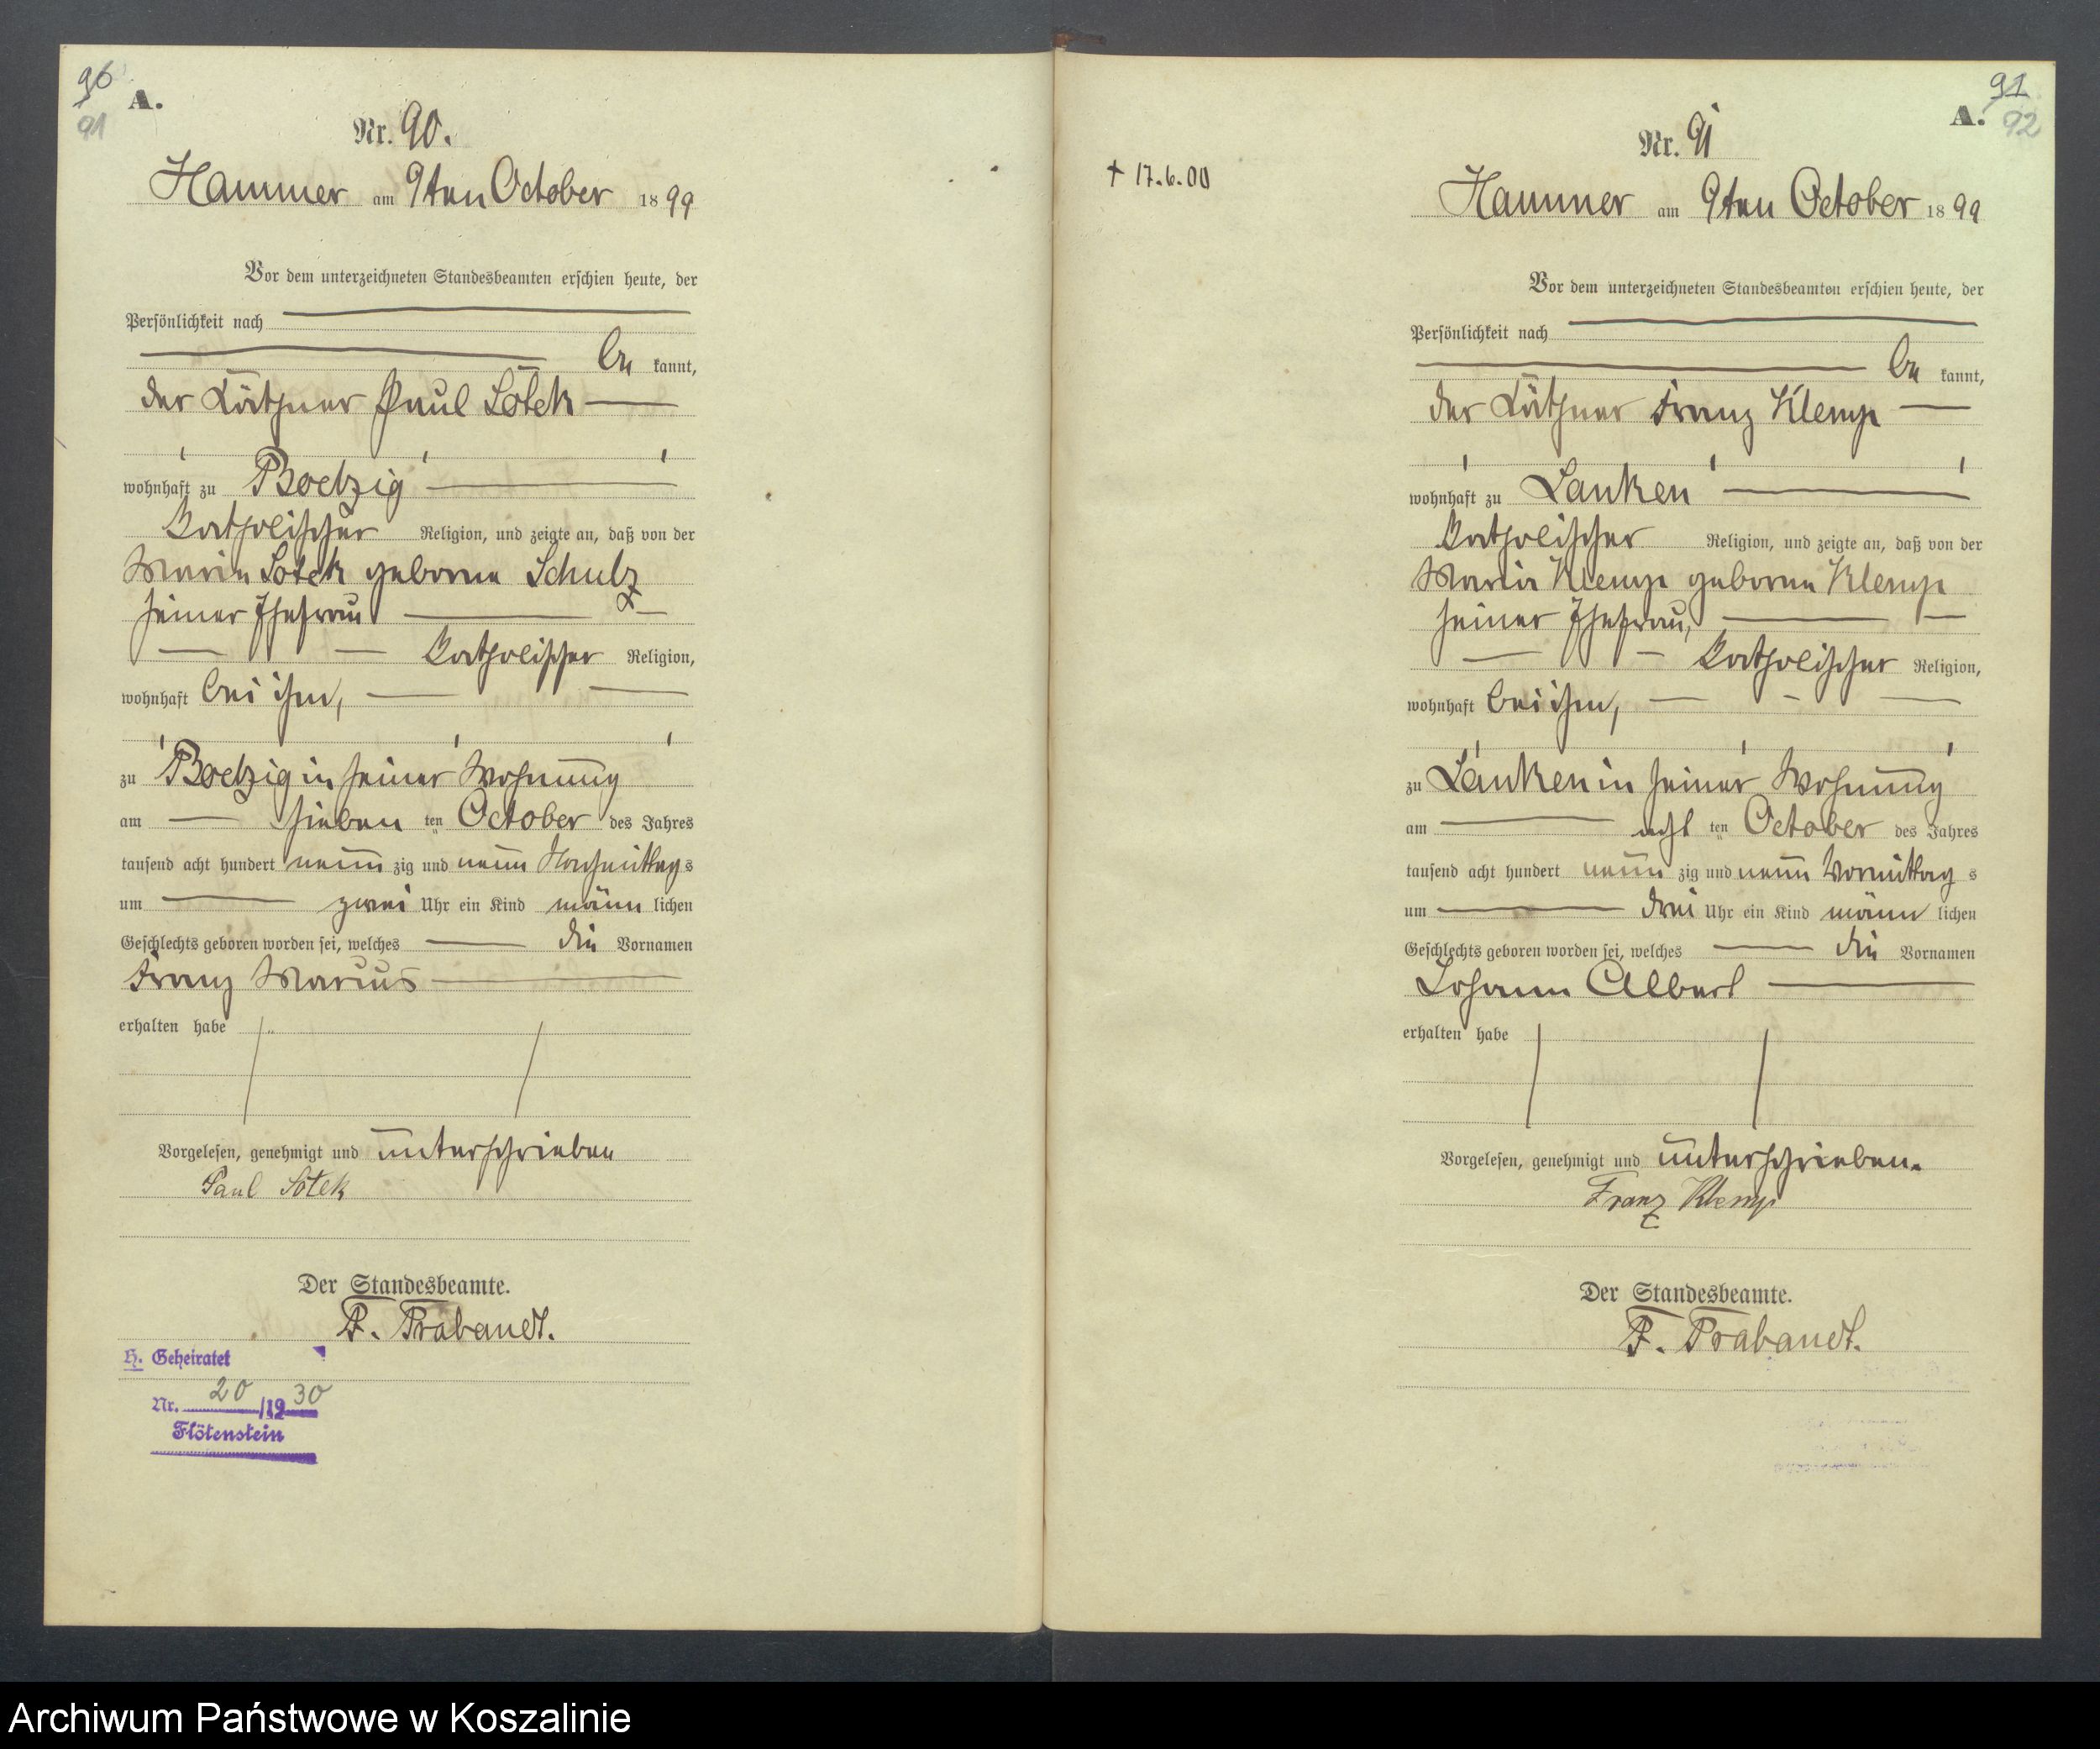 96
91
A.
Nr. 90.
Hammer am 9ten October 1899
Vor dem unterzeichneten Standesbeamten erschien heute, der
Persönlichkeit nach
be kannt,
der Käthner Paul Sotek
wohnhaft zu Boelzig
katholischer Religion, und zeigte an, daß von der
Maria Sotek geborne Schulz
seiner Ehefrau
katholischer Religion,
wohnhaft bei ihm,
zu Boelzig in seiner Wohnung
am sieben ten October des Jahres
tausend acht hundert neun zig und neun Nachmittag s
um zwei Uhr ein Kind männ lichen
Geschlechts geboren worden sei, welches die Vornamen
Franz Marius
erhalten habe
Vorgelesen, genehmigt und unterschrieben
Paul Sotek
Der Standesbeamte.
F. Prabandt.
H. Geheiratet
Nr. 20 /1930
Flötenstein
91
A. 92
Nr. 91
+ 17.6.00
Hammer am 9ten October 1899
Vor dem unterzeichneten Standesbeamten erschien heute, der
Persönlichkeit nach
be kannt,
der Käthner Franz Klemp
wohnhaft zu Lanken
katholischer Religion, und zeigte an, daß von der
Maria Klemp geborne Klemp
seiner Ehefrau,
katholischer Religion,
wohnhaft bei ihm,
zu Lanken in seiner Wohnung
am acht ten October des Jahres
tausend acht hundert neun zig und neun Vormittag s
um drei Uhr ein Kind männ lichen
Geschlechts geboren worden sei, welches die Vornamen
Johann Albert
erhalten habe
Vorgelesen, genehmigt und unterschrieben.
Franz Klemp
Der Standesbeamte.
F. Prabandt.
Archiwum Państwowe w Koszalinie